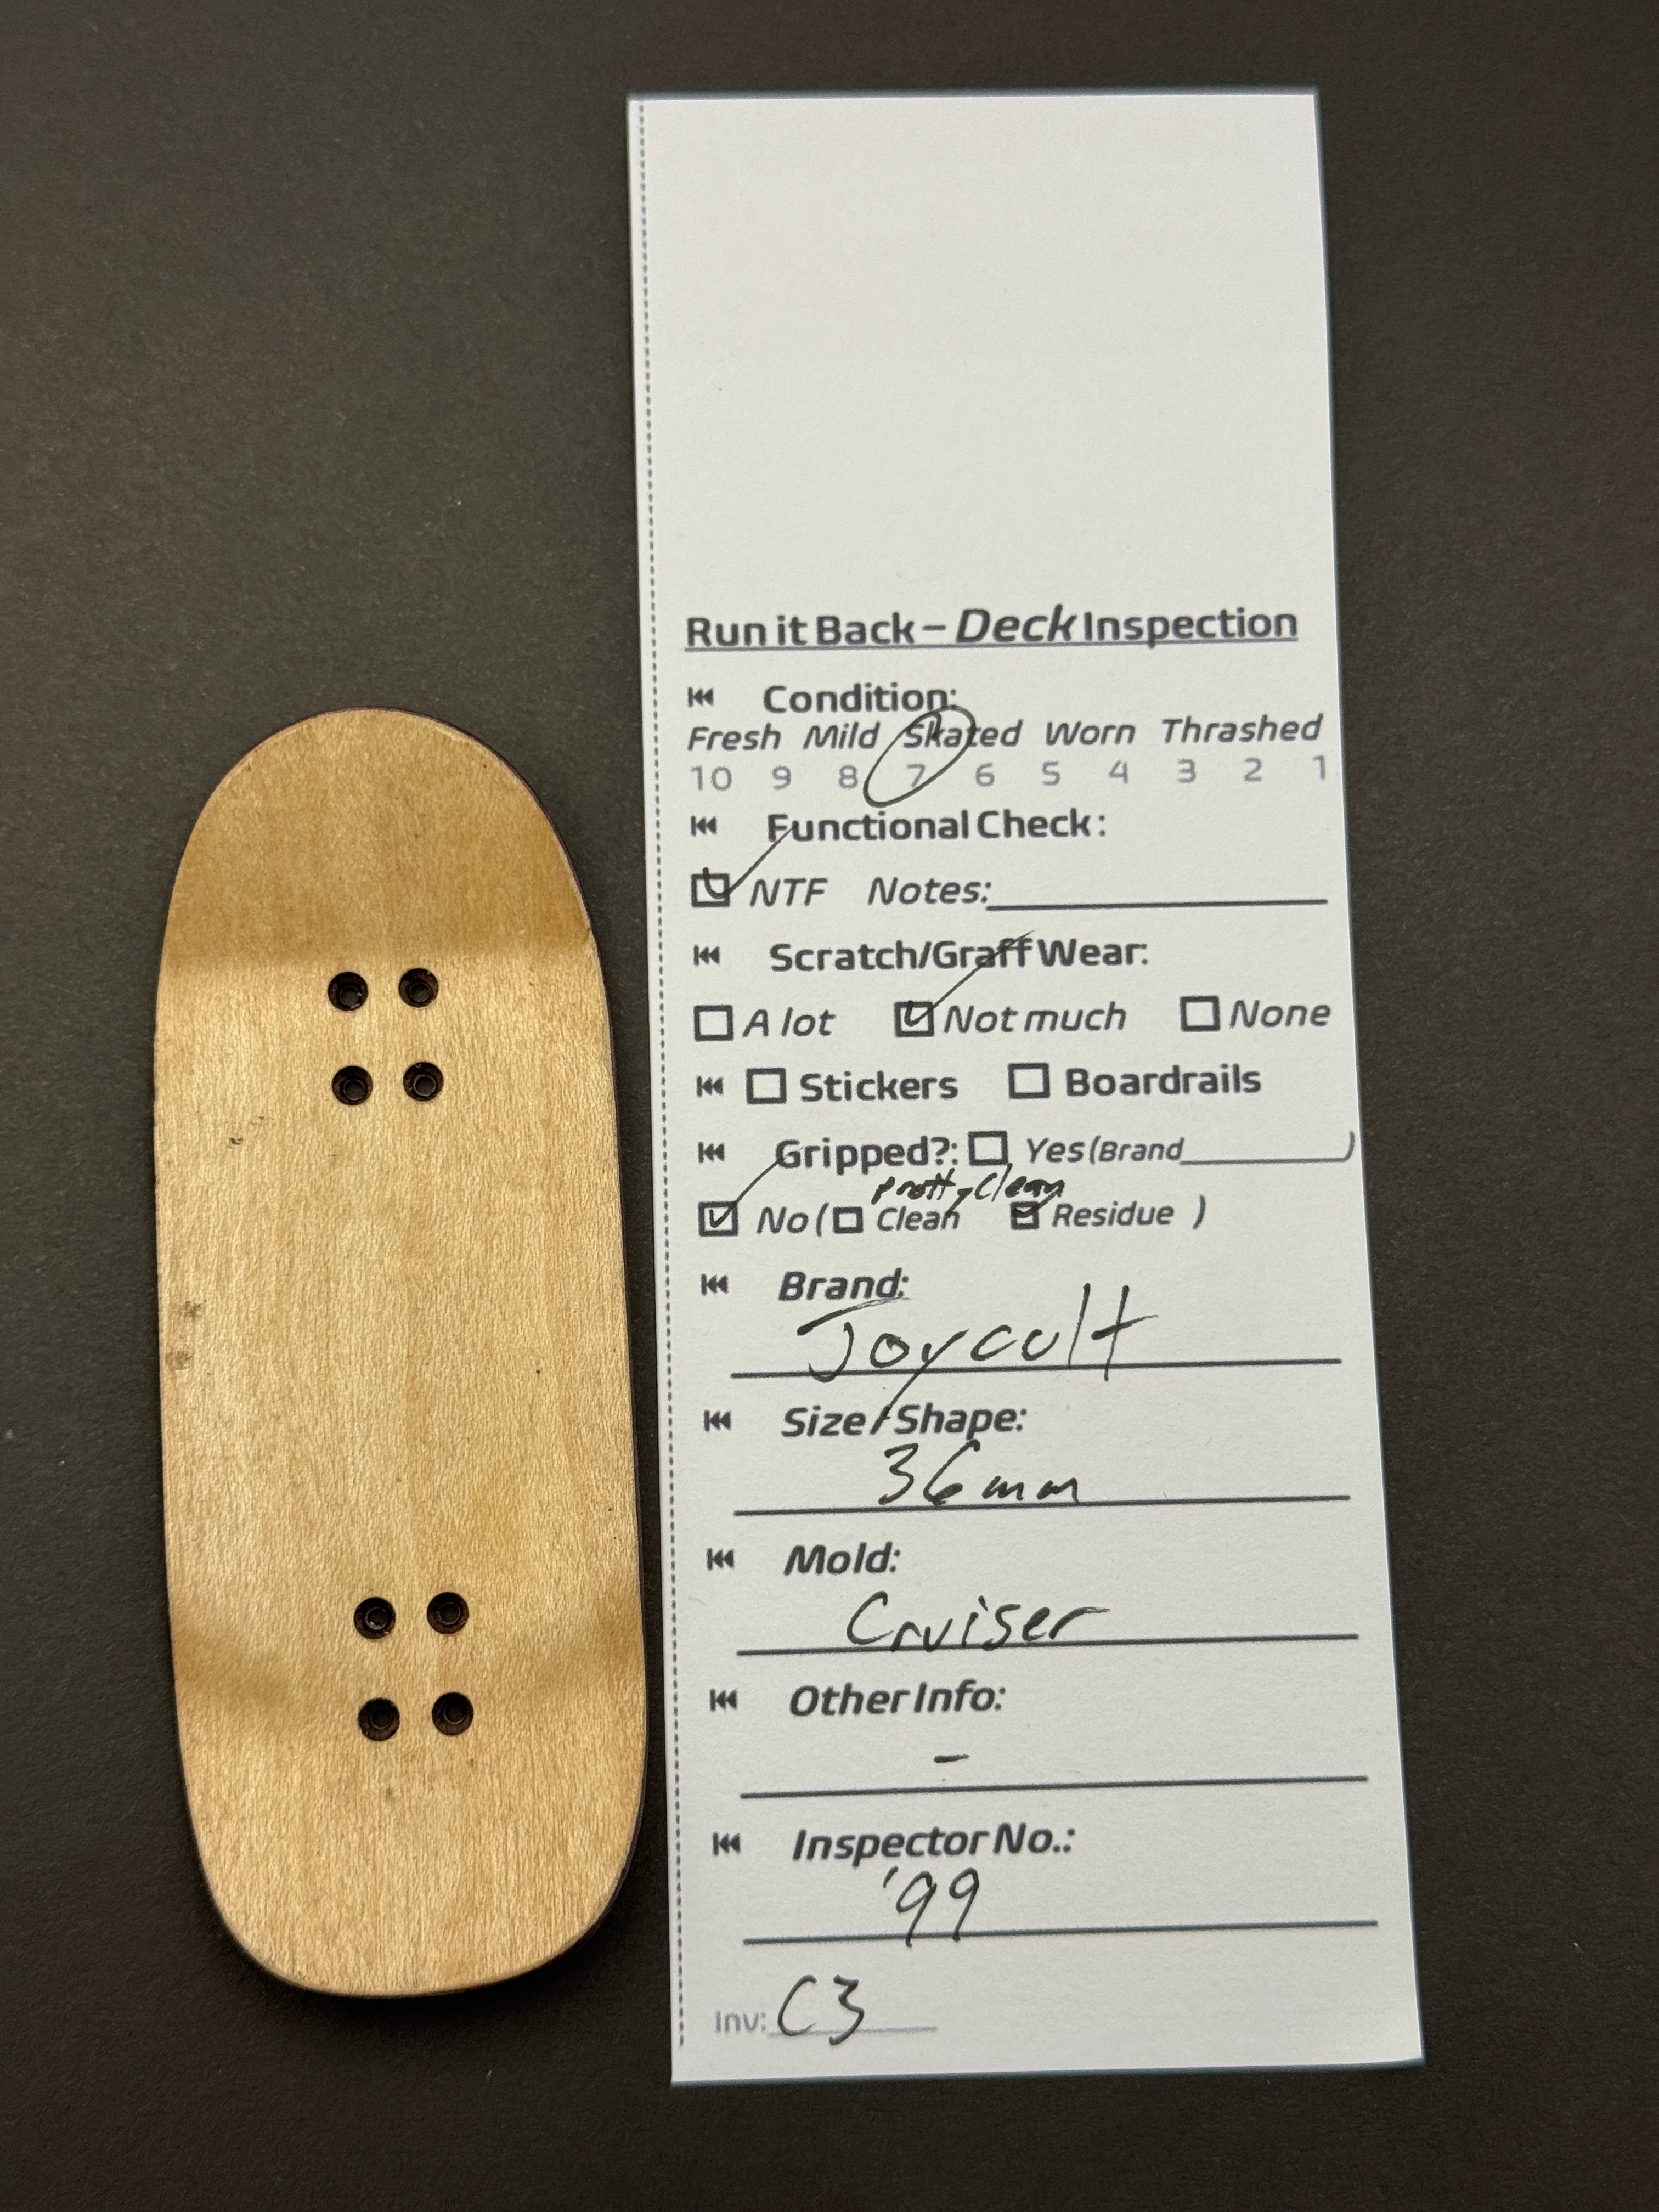 Run it Back – Deck Inspection
Condition:
Fresh Mild Skated Worn Thrashed
10 9 8 7 6 5 4 3 2 1
Functional Check:
NTF Notes:
Scratch/Graff Wear:
A lot Not much None
Stickers Boardrails
Gripped?: Yes (Brand )
pretty clean
No ( Clean Residue )
Brand:
Joycult
Size / Shape:
36mm
Mold:
Cruiser
Other Info:
-
Inspector No.:
'99
Inv: C3